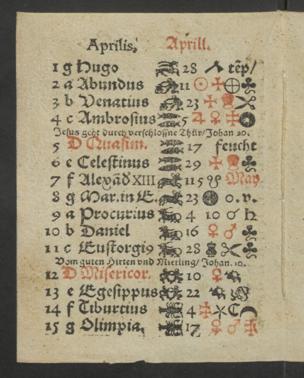 Aprilis. Aprill.
1 g Hugo 28 tēp/
2 a Abundus 11
3 b Venatius 23
4 c Ambrosius 5
Jesus geht durch verschloßne Thür/ Johan 20.
5 D Quasim. 17 feucht
6 e Celestinus 29
7 f Alexād XIII 115 May.
8 g Mar. in E. 23 o. v.
9 a Procurius 4 10
10 b Daniel 16
11 c Eustorgi9 28
Vom guten Hirten vnd Mietling/ Johan. 10.
12 D Misericor. 10
13 e Egesippus 22
14 f Tiburtius 4
15 g Olimpia. 17